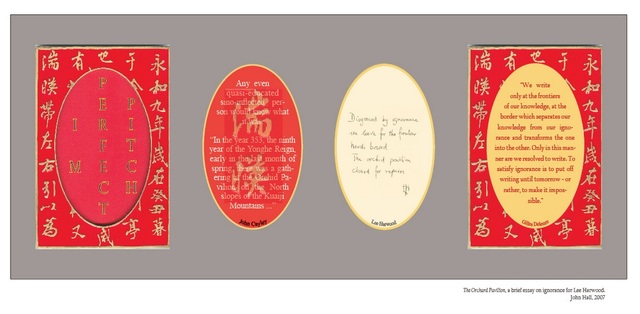 永和九年
湍暎帶左右引以為
IM
PERFECT
PITCH
Any even
quasi-educated
sino-inflected per-
son would know what
"In the year 353, the ninth
year of the Yonghe Reign,
early in the last month of
spring, there was a gath-
ering at the Orchid Pa-
vilion on the North
slopes of the Kuaiji
Mountains ..."
John Cayley
Disguised by ignorance
we look for the frontier
hands bound
The orchid pavilion
closed for repairs
Lee Harwood
永和九年
湍暎帶左右引以為
"We write
only at the frontiers
of our knowledge, at the
border which separates our
knowledge from our igno-
rance and transforms the one
into the other. Only in this man-
ner are we resolved to write. To
satisfy ignorance is to put off
writing until tomorrow - or
rather, to make it impos-
sible."
Gilles Deleuze
The Orchid Pavilion, a brief essay on ignorance for Lee Harwood.
John Hall, 2007